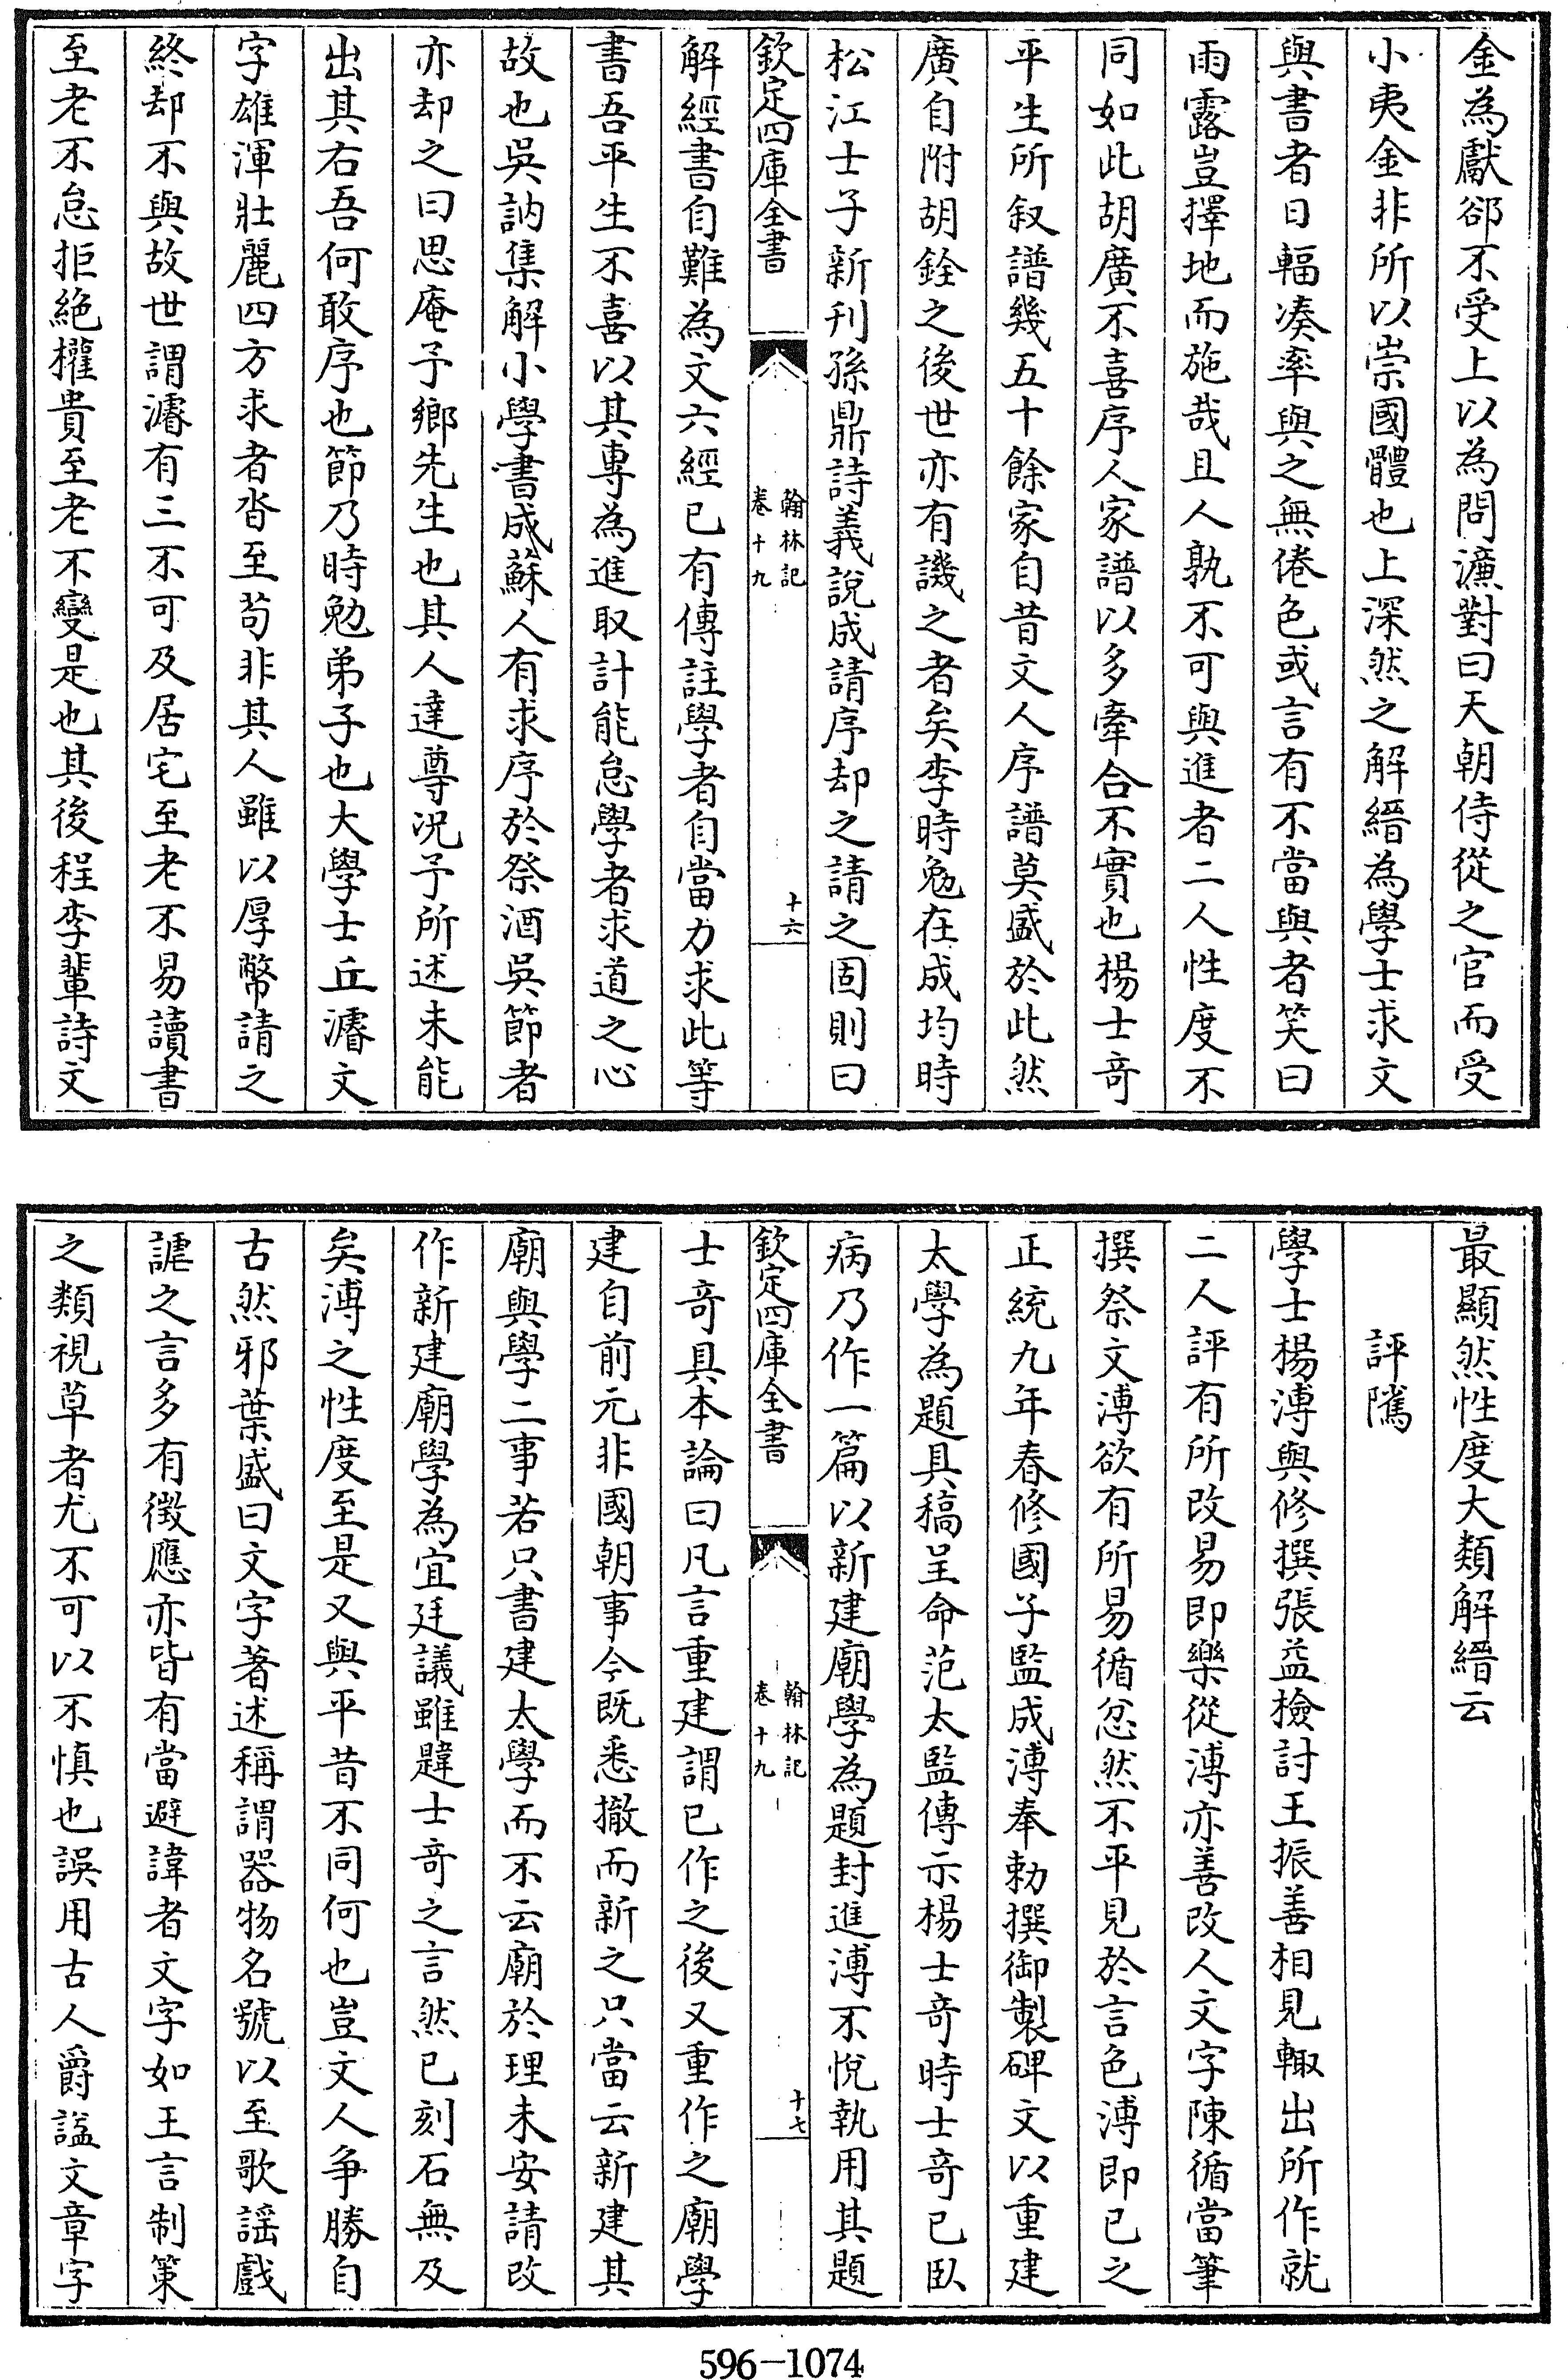 金為獻卻不受上以為問濂對曰天朝侍從之官而受
小夷金非所以崇國體也上深然之解縉為學士求文
與書者日輻凑率與之無倦色或言有不當與者笑曰
雨露豈擇地而施哉且人孰不可與進者二人性度不
同如此胡廣不喜序人家譜以多牽合不實也楊士奇
平生所叙譜幾五十餘家自昔文人序譜莫盛於此然
廣自附胡銓之後世亦有譏之者矣李時勉在成均時
松江士子新刊孫鼎詩義說成請序却之請之固則曰
欽定四庫全書
翰林記
卷十九
十六
解經書自難為文六經已有傳註學者自當力求此等
書吾平生不喜以其專為進取計能怠學者求道之心
故也吳訥集解小學書成蘇人有求序於祭酒吳節者
亦却之曰思庵予鄉先生也其人達尊况予所述未能
出其右吾何敢序也節乃時勉弟子也大學士丘濬文
字雄渾壯麗四方求者沓至茍非其人雖以厚幣請之
終却不與故世謂濬有三不可及居宅至老不易讀書
至老不怠拒絶權貴至老不變是也其後程李輩詩文
最顯然性度大類解縉云
評隲
學士楊溥與修撰張益檢討王振善相見輙出所作就
二人評有所改易即樂從溥亦善改人文字陳循當筆
撰祭文溥欲有所易循忿然不平見於言色溥即已之
正統九年春修國子監成溥奉勅撰御製碑文以重建
太學為題具稿呈命范太監傳示楊士奇時士奇已臥
病乃作一篇以新建廟學為題封進溥不悅執用其題
欽定四庫全書
翰林記
卷十九
十七
士奇具本論曰凡言重建謂已作之後又重作之廟學
建自前元非國朝事今既悉撤而新之只當云新建其
廟與學二事若只書建太學而不云廟於理未安請改
作新建廟學為宜廷議雖韙士奇之言然已刻石無及
矣溥之性度至是又與平昔不同何也豈文人争勝自
古然邪葉盛曰文字著述稱謂器物名號以至歌謡戲
謔之言多有徴應亦皆有當避諱者文字如王言制策
之類視草者尤不可以不慎也誤用古人爵諡文章字
596—1074